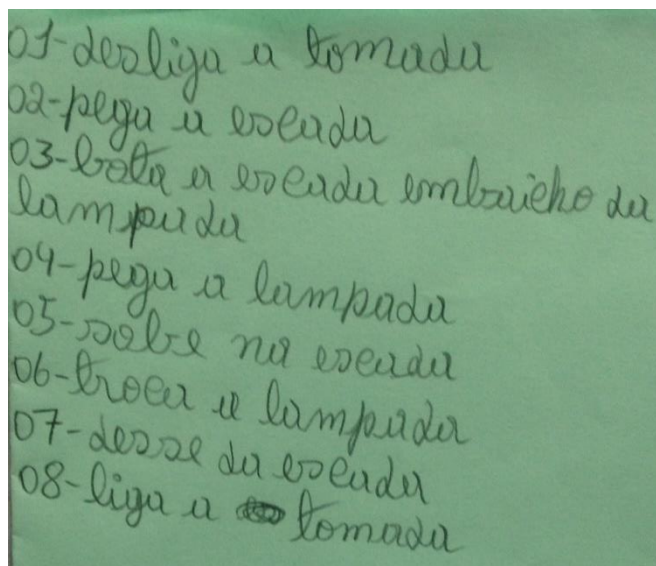 01-desliga a tomada
02-pega a escada
03-bota a escada embaicho da
lampada
04-pega a lampada
05-sobe na escada
06-troca a lampada
07-desse da escada
08-liga a tomada